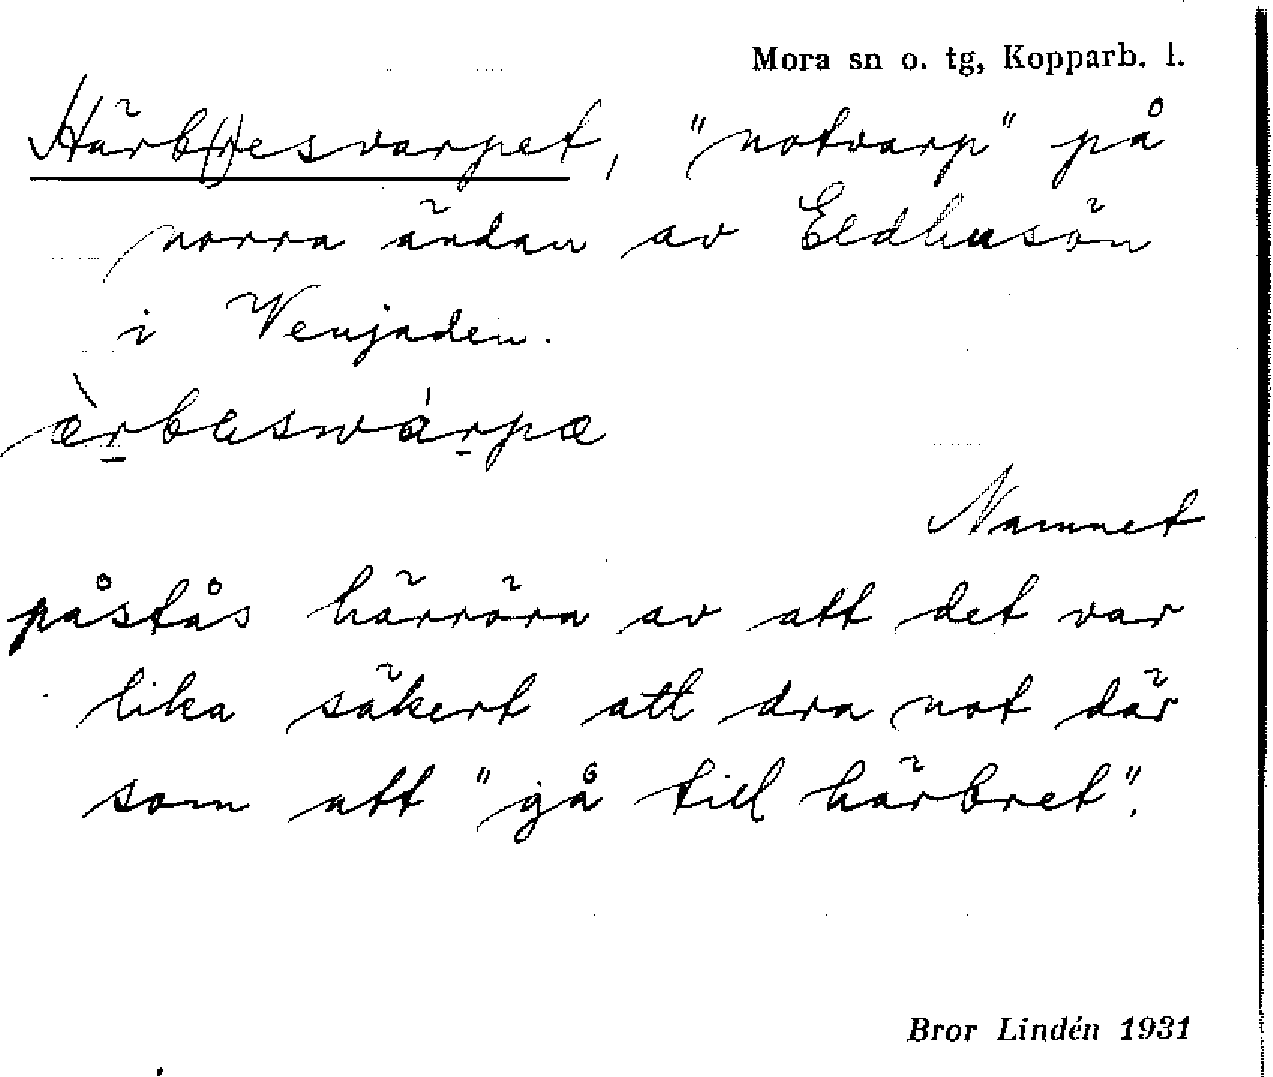 Mora sn o. tg, Kopparb. l.
Härb(r)esvarpet, "notvarp" på
norra ändan av Eldhusön
i Venjaden.
ὰrbæswárpæ
Namnet
påstås härröra av att det var
lika säkert att dra not där
som att "gå till härbret".
Bror Lindén 1931